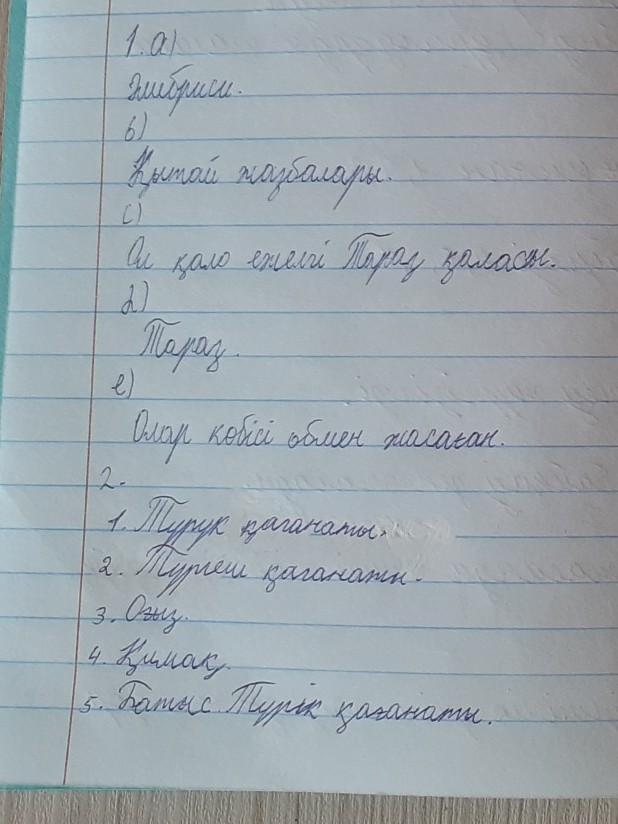 1. а)
Әлибриси.
б)
Қытай жазбалары.
с)
Ол қала ежелгі Тараз қаласы.
d)
Тараз.
е)
Олар көбісі обмен жасаған.
2.
1. Турук қаганаты.
2. Тургеш қаганаты.
3. Оғыз.
4. Қимақ.
5. Батыс Турік қағанаты.